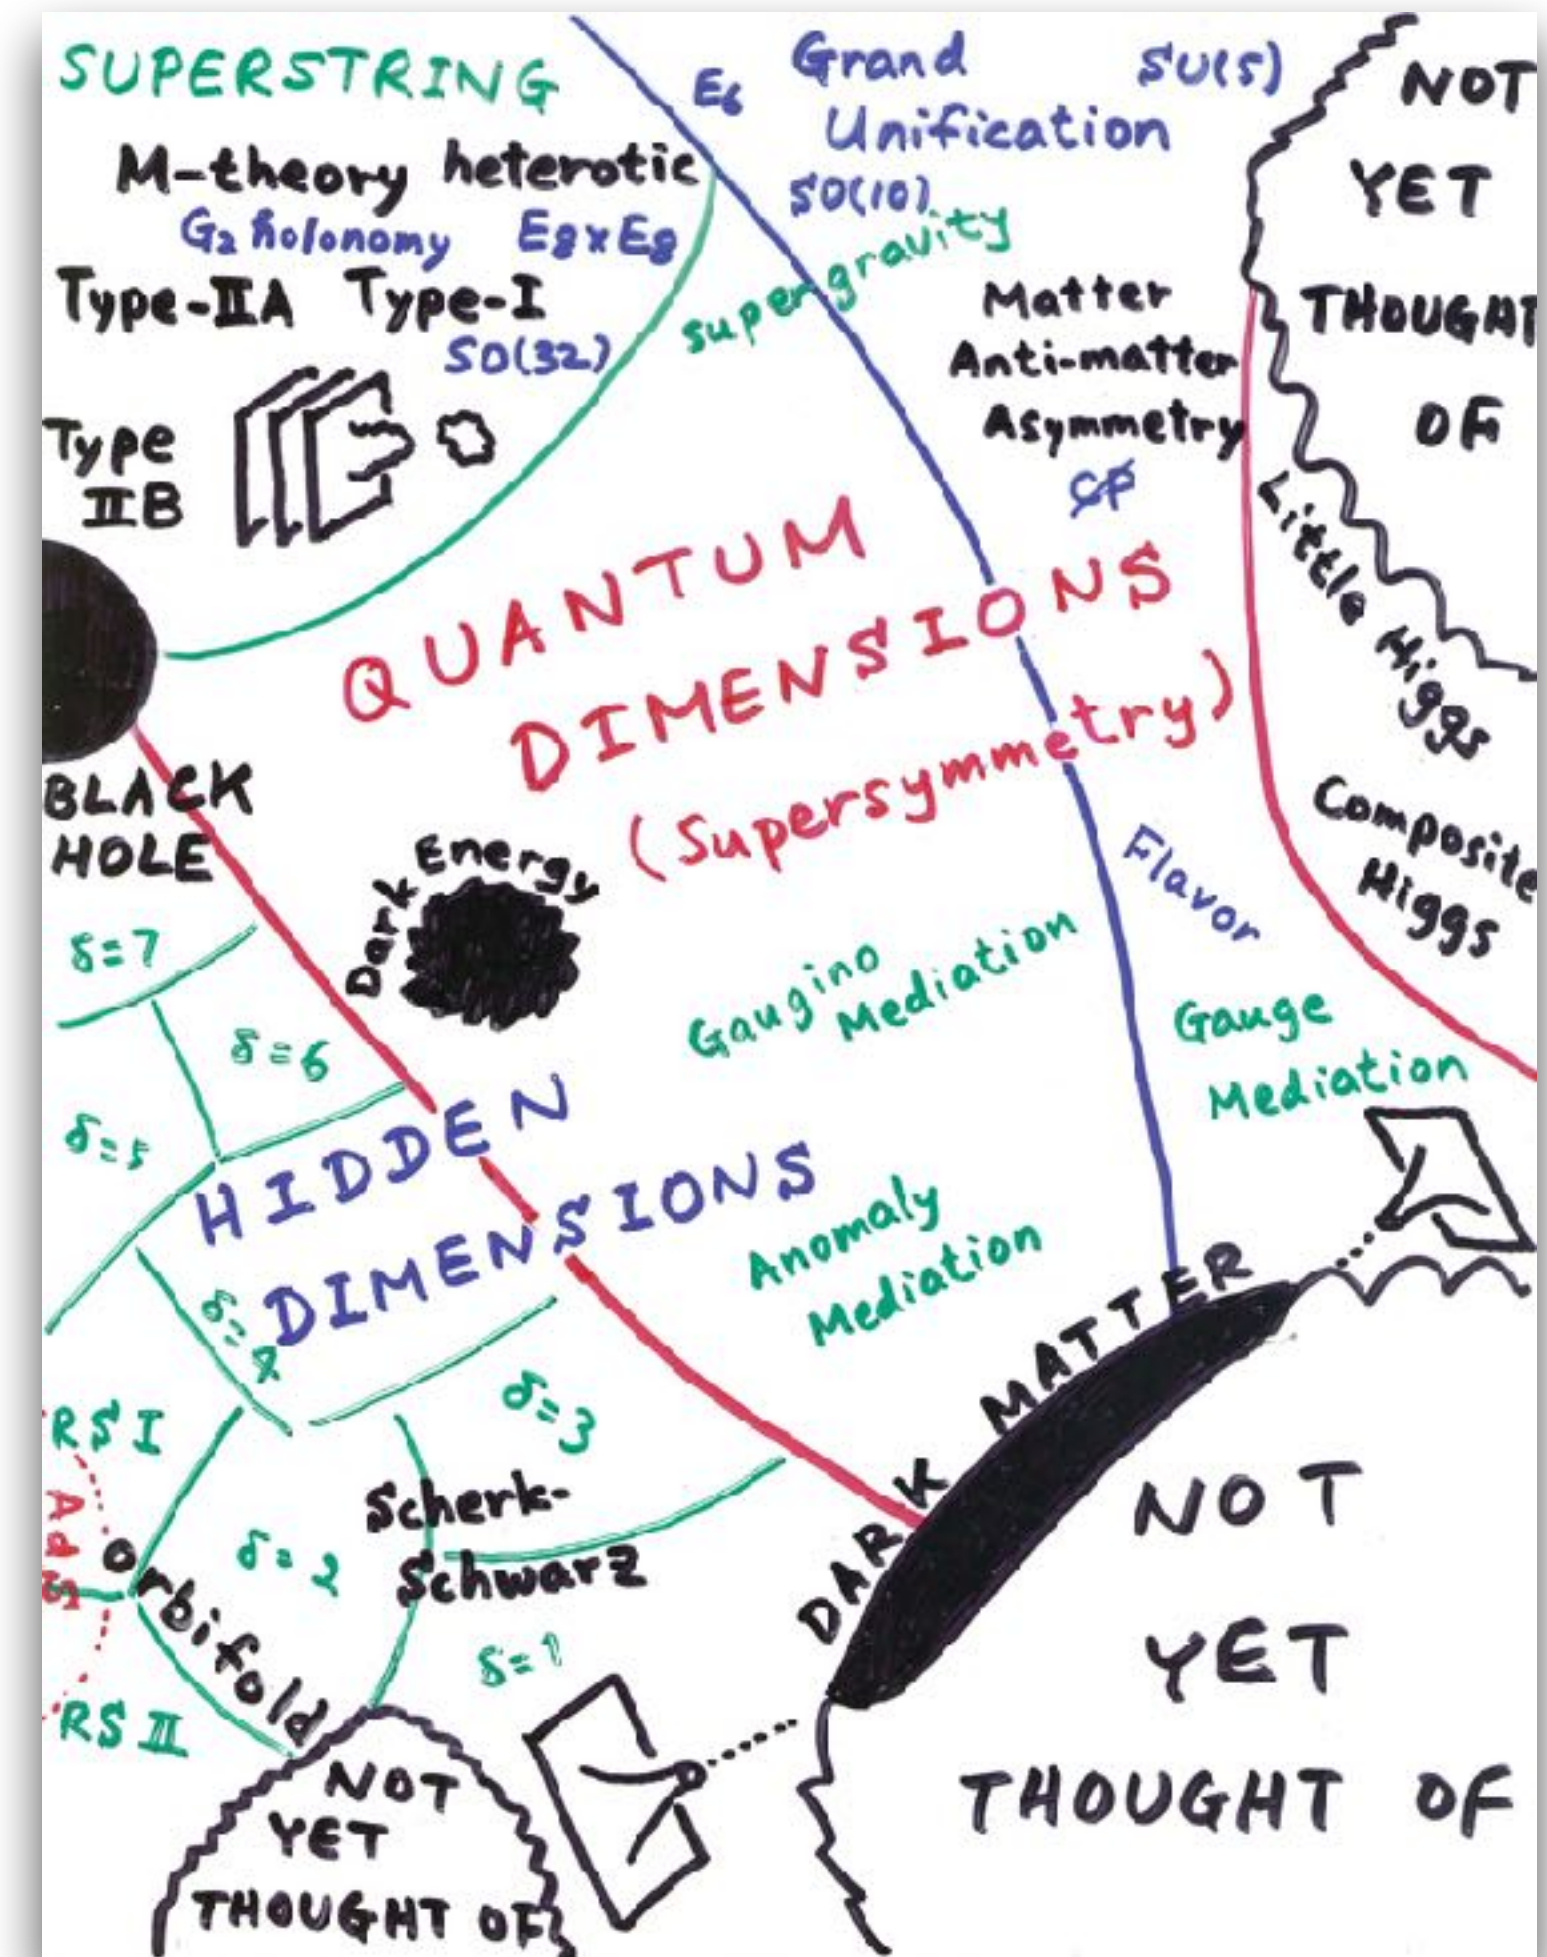 SUPERSTRING
M-theory heterotic
G₂ holonomy E₈xE₈
Type-IIA Type-I
SO(32)
Type
IIB
E₆
Grand
Unification
SU(5)
SO(10)
supergravity
Matter
Anti-matter
Asymmetry
C̸P̸
NOT
YET
THOUGHT
OF
Little Higgs
Composite
Higgs
QUANTUM
DIMENSIONS
(Supersymmetry)
BLACK
HOLE
Dark Energy
Flavor
Gaugino
Mediation
Gauge
Mediation
Anomaly
Mediation
δ=7
δ=6
δ=5
HIDDEN
DIMENSIONS
δ=4
δ=3
RS I
AdS
Orbifold
δ=2
Scherk-
Schwarz
δ=1
RS II
DARK MATTER
NOT
YET
THOUGHT OF
NOT
YET
THOUGHT OF